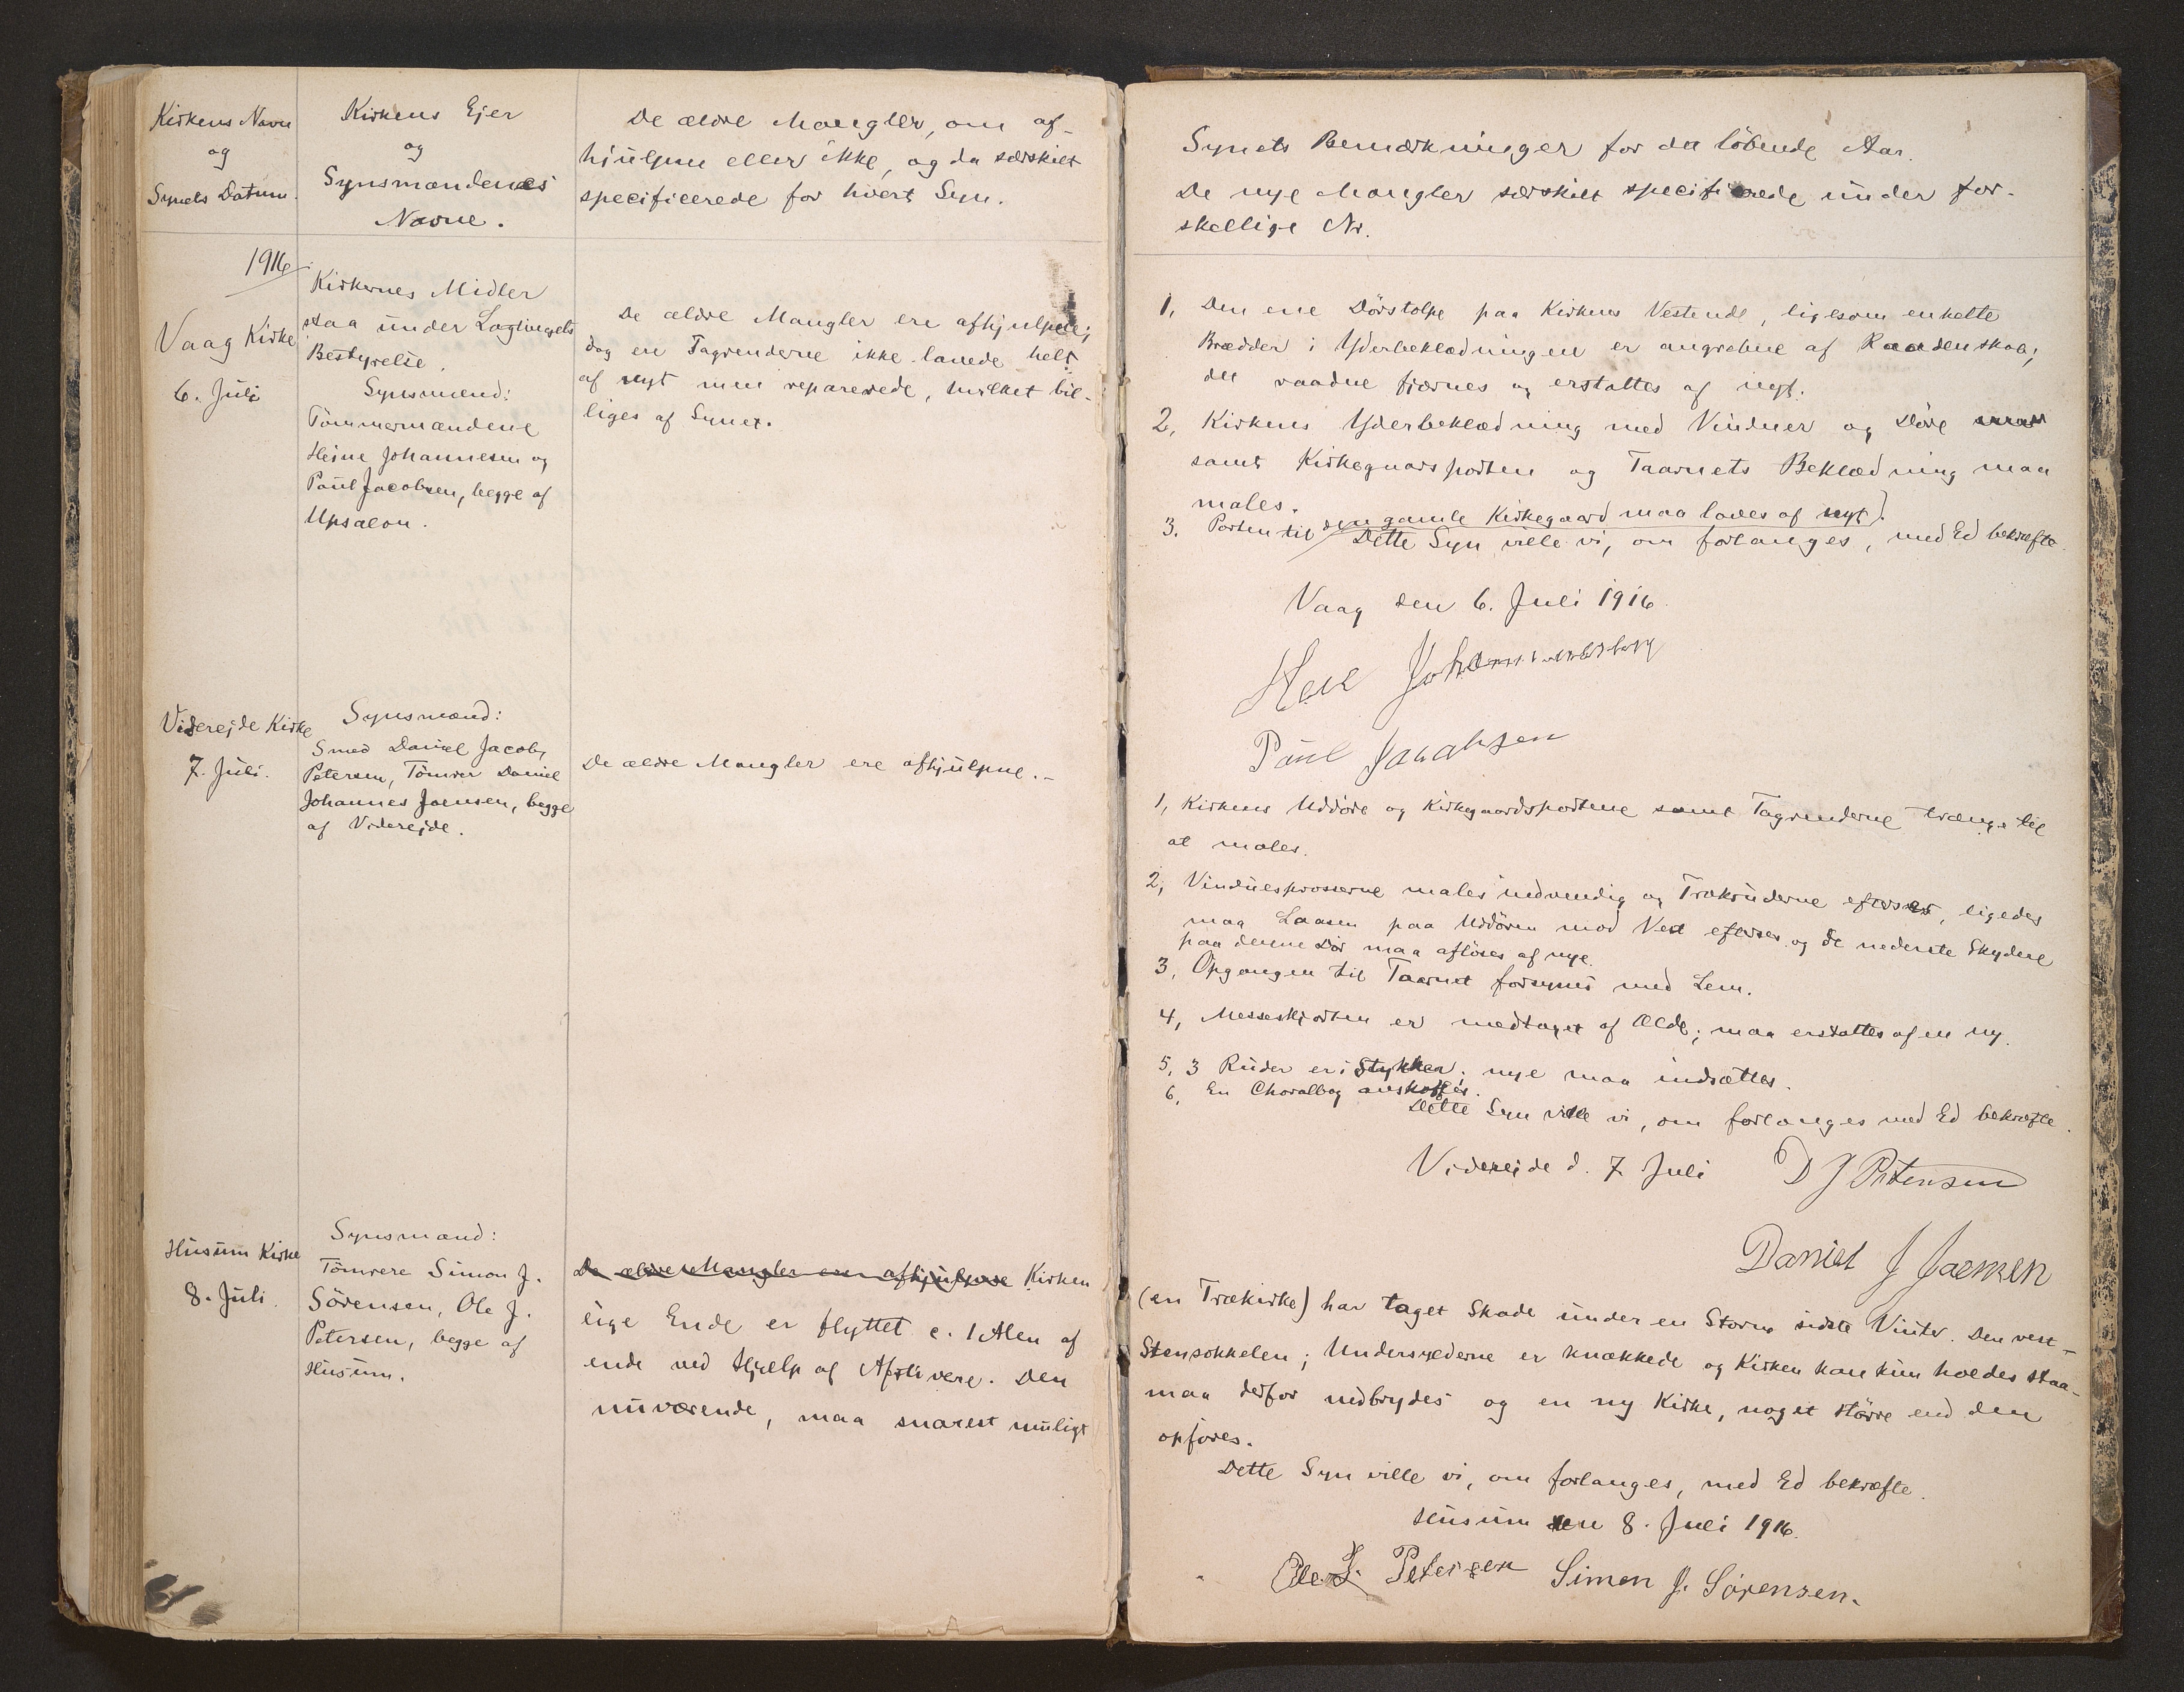 Kirkens Navn
og
Synets Datum.
Kirkens Ejer
og
Synsmændenes
Navne.
De ældre Mangler, om af-
hjulpne eller ikke, og da særskilt
specificerede for hvert Syn.
1916
Vaag Kirke
6. Juli
Kirkernes Midler
staa under Lagtingets
Bestyrelse.
Synsmænd:
Tömmermændene
Heine Johannesen og
Poul Jacobsen, begge af
De ældre Mangler ere afhjulpne;
dog ere Tagrenderne ikke lavede helt
af nyt men reparerede, hvilket bil-
liges af Synet.
Viderejde Kirke
7. Juli.
Synsmænd:
Smed Daniel Jacob
Petersen, Tömrer Daniel
Johannes Joensen, begge
af Viderejde.
De ældre Mangler ere afhjulpne.-
Husum Kirke
8. Juli.
Synsmænd:
Tömrere Simon J.
Sörensen, Ole J.
Petersen, begge af
Husum.
De ældre Mangler ere afhjulpne Kirken
lige Ende er flyttet c. 1 Alen af
ende ved Hjælp af Afstivere. Den
nuværende, maa snarest muligt
Synets Bemærkninger for det löbende Aar.
De nye Mangler særskilt specificerede under for-
skellige Nr.
1, Den ene Dörstolpe paa Kirkens Vestende, ligesom enkelte
Brædder i Yderbeklædningen er angrebne af Raaddenskab;
det raadne fjernes og erstattes af nyt.
2, Kirkens Yderbeklædning med Vinduer og Döre
samt Kirkegaardsporten og Taarnets Beklædning maa
males.
3. Porten til den gamle Kirkegaard maa laves af nyt).
Dette Syn ville vi, om forlanges, med Ed bekræfte.
Vaag den 6. Juli 1916.
Poul Jacobsen
1, Kirkens Uddöre og Kirkegaardsportene samt Tagrenderne trænge til
at males.
2, Vinduesprosserne males indvendig og Trækruderne efterses, ligedes
maa Laasen paa Uddören mod Vest efterses og de nederste Skydene
paa denne Dör maa aflöses af nye.
3, Opgangen til Taarnet forsynes med Lem.
4, Messeskjorten er medtaget af Ælde; maa erstattes af en ny.
5, 3 Ruder er i Stykker; nye maa indsættes.
6, En Choralbog anskaffes.
Dette Syn ville vi, om forlanges med Ed bekræfte.
Viderejde d. 7 Juli D J Petersen
Daniel J Joensen
(en Trækirke) har taget Skade under en Storm sidste Vinter. Den vest-
Stensokkelen; Undersylderne er knækkede og Kirken kan kun holdes staa-
maa derfor nedbrydes og en ny Kirke, noget större end den
opföres.
Dette Syn ville vi, om forlanges, med Ed bekræfte.
Husum den 8. Juli 1916.
Ole J. Petersen Simon J. Sörensen.